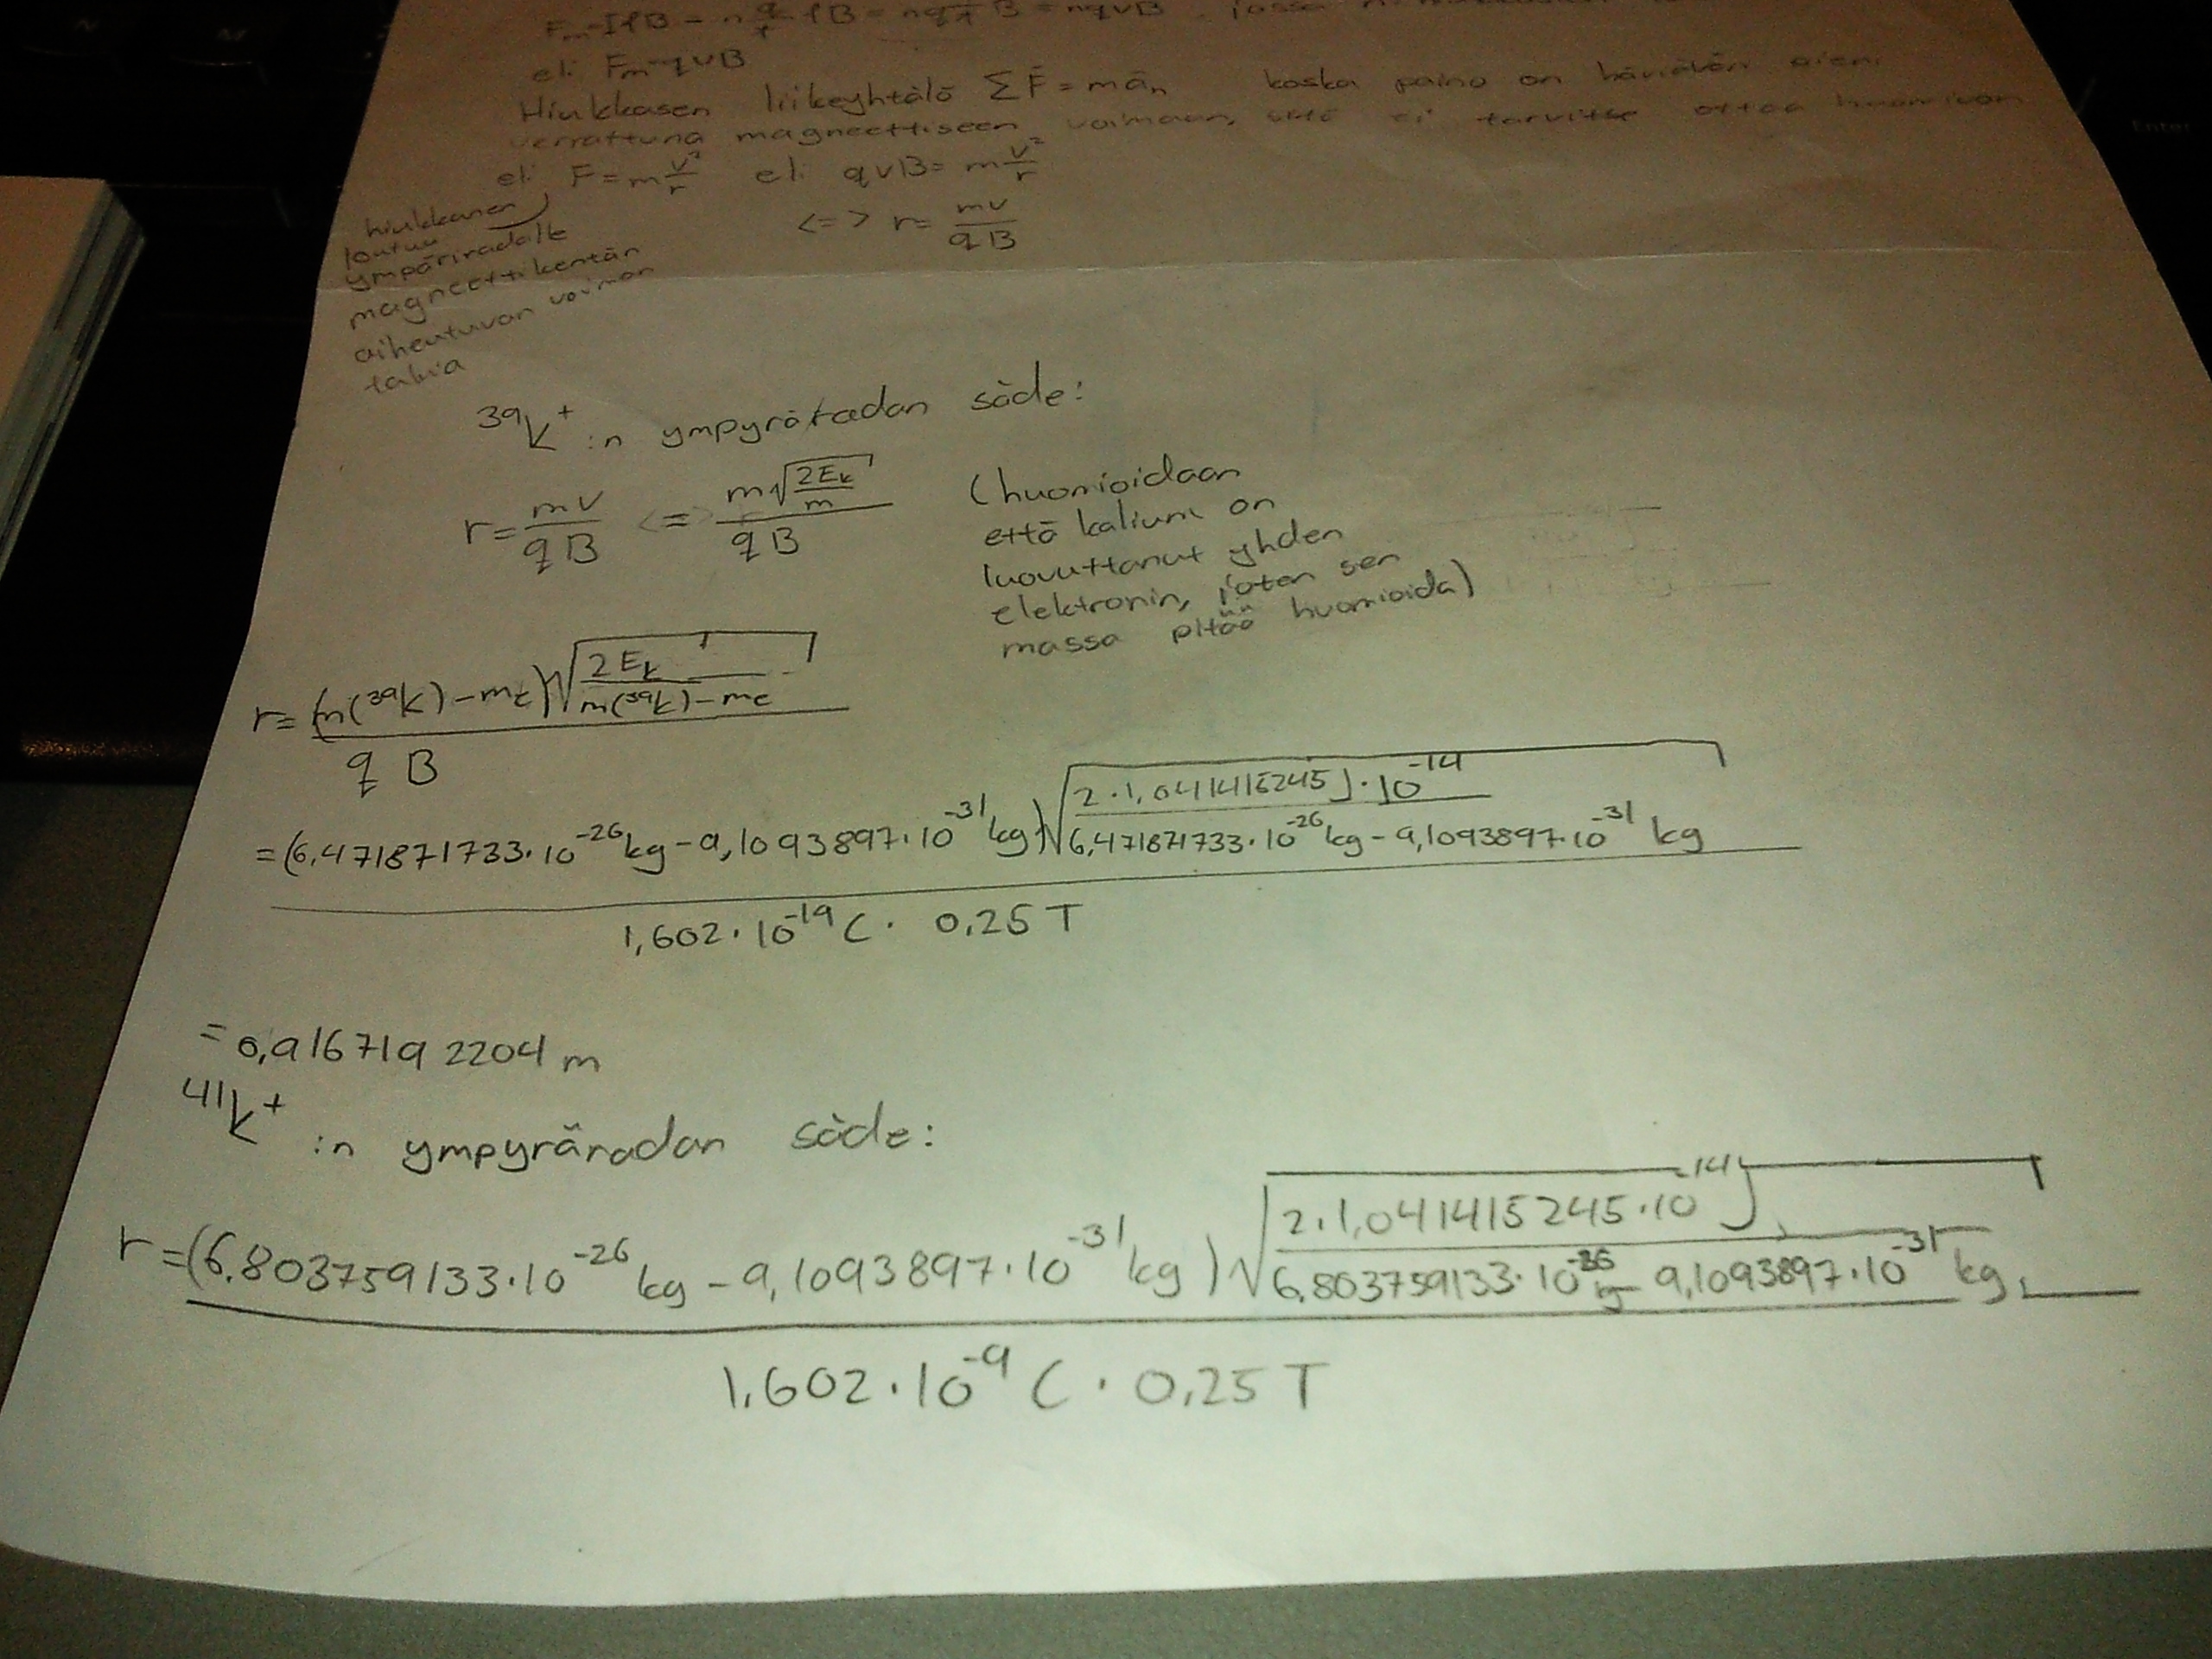 Fm=IlB = n q/t lB = nq l/t B = nqvB, jossa
eli Fm=qvB
Hiukkasen liikeyhtälö ΣF̄ = mān koska paino on häviävän pieni
verrattuna magneettiseen voimaan, sitä ei tarvitse ottaa huomioon
eli F=m v²/r eli qvB= m v²/r
<=> r= mv/qB
hiukkanen
joutuu
ympäriradalle
magneettikentän
aiheutuvan voiman
takia
³⁹K⁺:n ympyräradan säde:
r= mv/qB <=> m√(2Ek/m)/qB
(huomioidaan
että kalium on
luovuttanut yhden
elektronin, joten sen
massa pitää huomioida)
r= (m(³⁹K)-me)√(2Ek/(m(³⁹K)-me))
q B
=(6,471871733·10⁻²⁶kg-9,1093897·10⁻³¹kg)√(2·1,041415245J·10⁻¹⁴/6,471871733·10⁻²⁶kg-9,1093897·10⁻³¹kg)
1,602·10⁻¹⁹C· 0,25T
= 0,9167192204 m
⁴¹K⁺:n ympyräradan säde:
r=(6,803759133·10⁻²⁶kg-9,1093897·10⁻³¹kg)√(2·1,041415245·10⁻¹⁴J/6,803759133·10⁻²⁶kg-9,1093897·10⁻³¹kg)
1,602·10⁻⁹C·0,25T
Enter